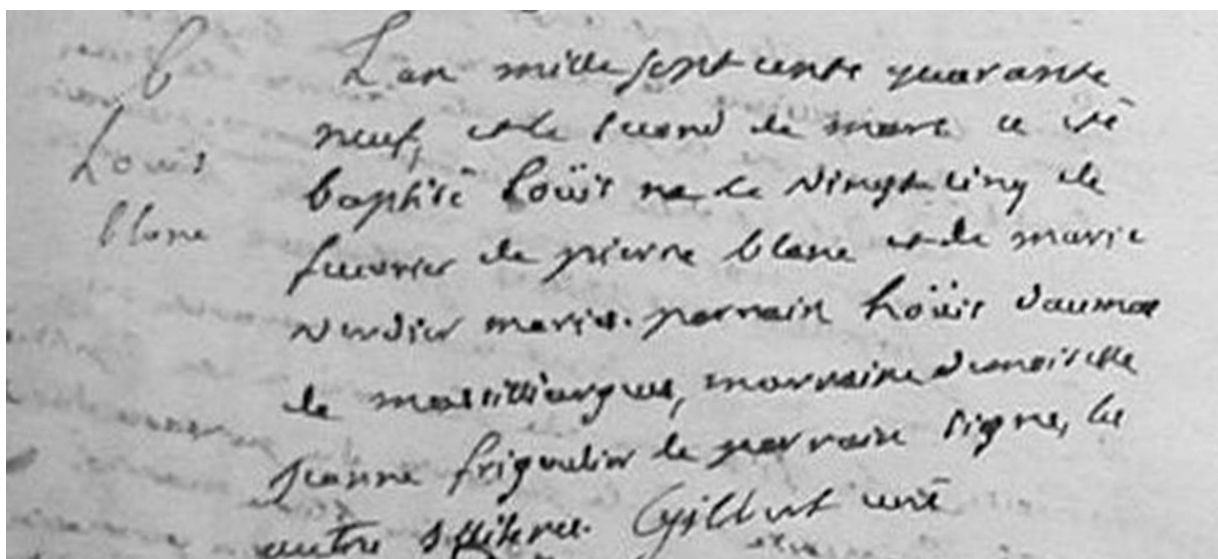 b
Loüis
blanc
L'an mille sept cents quarante
neuf, et le second de mars a été
baptisé Loüis né le vingt cinq de
fevrier de pierre blanc et de marie
verdier mariés. parrain Loüis daumas
de massilliargues, marraine demoiselle
jeanne le parrain signe, les
autres illiteres. Gilbert curé